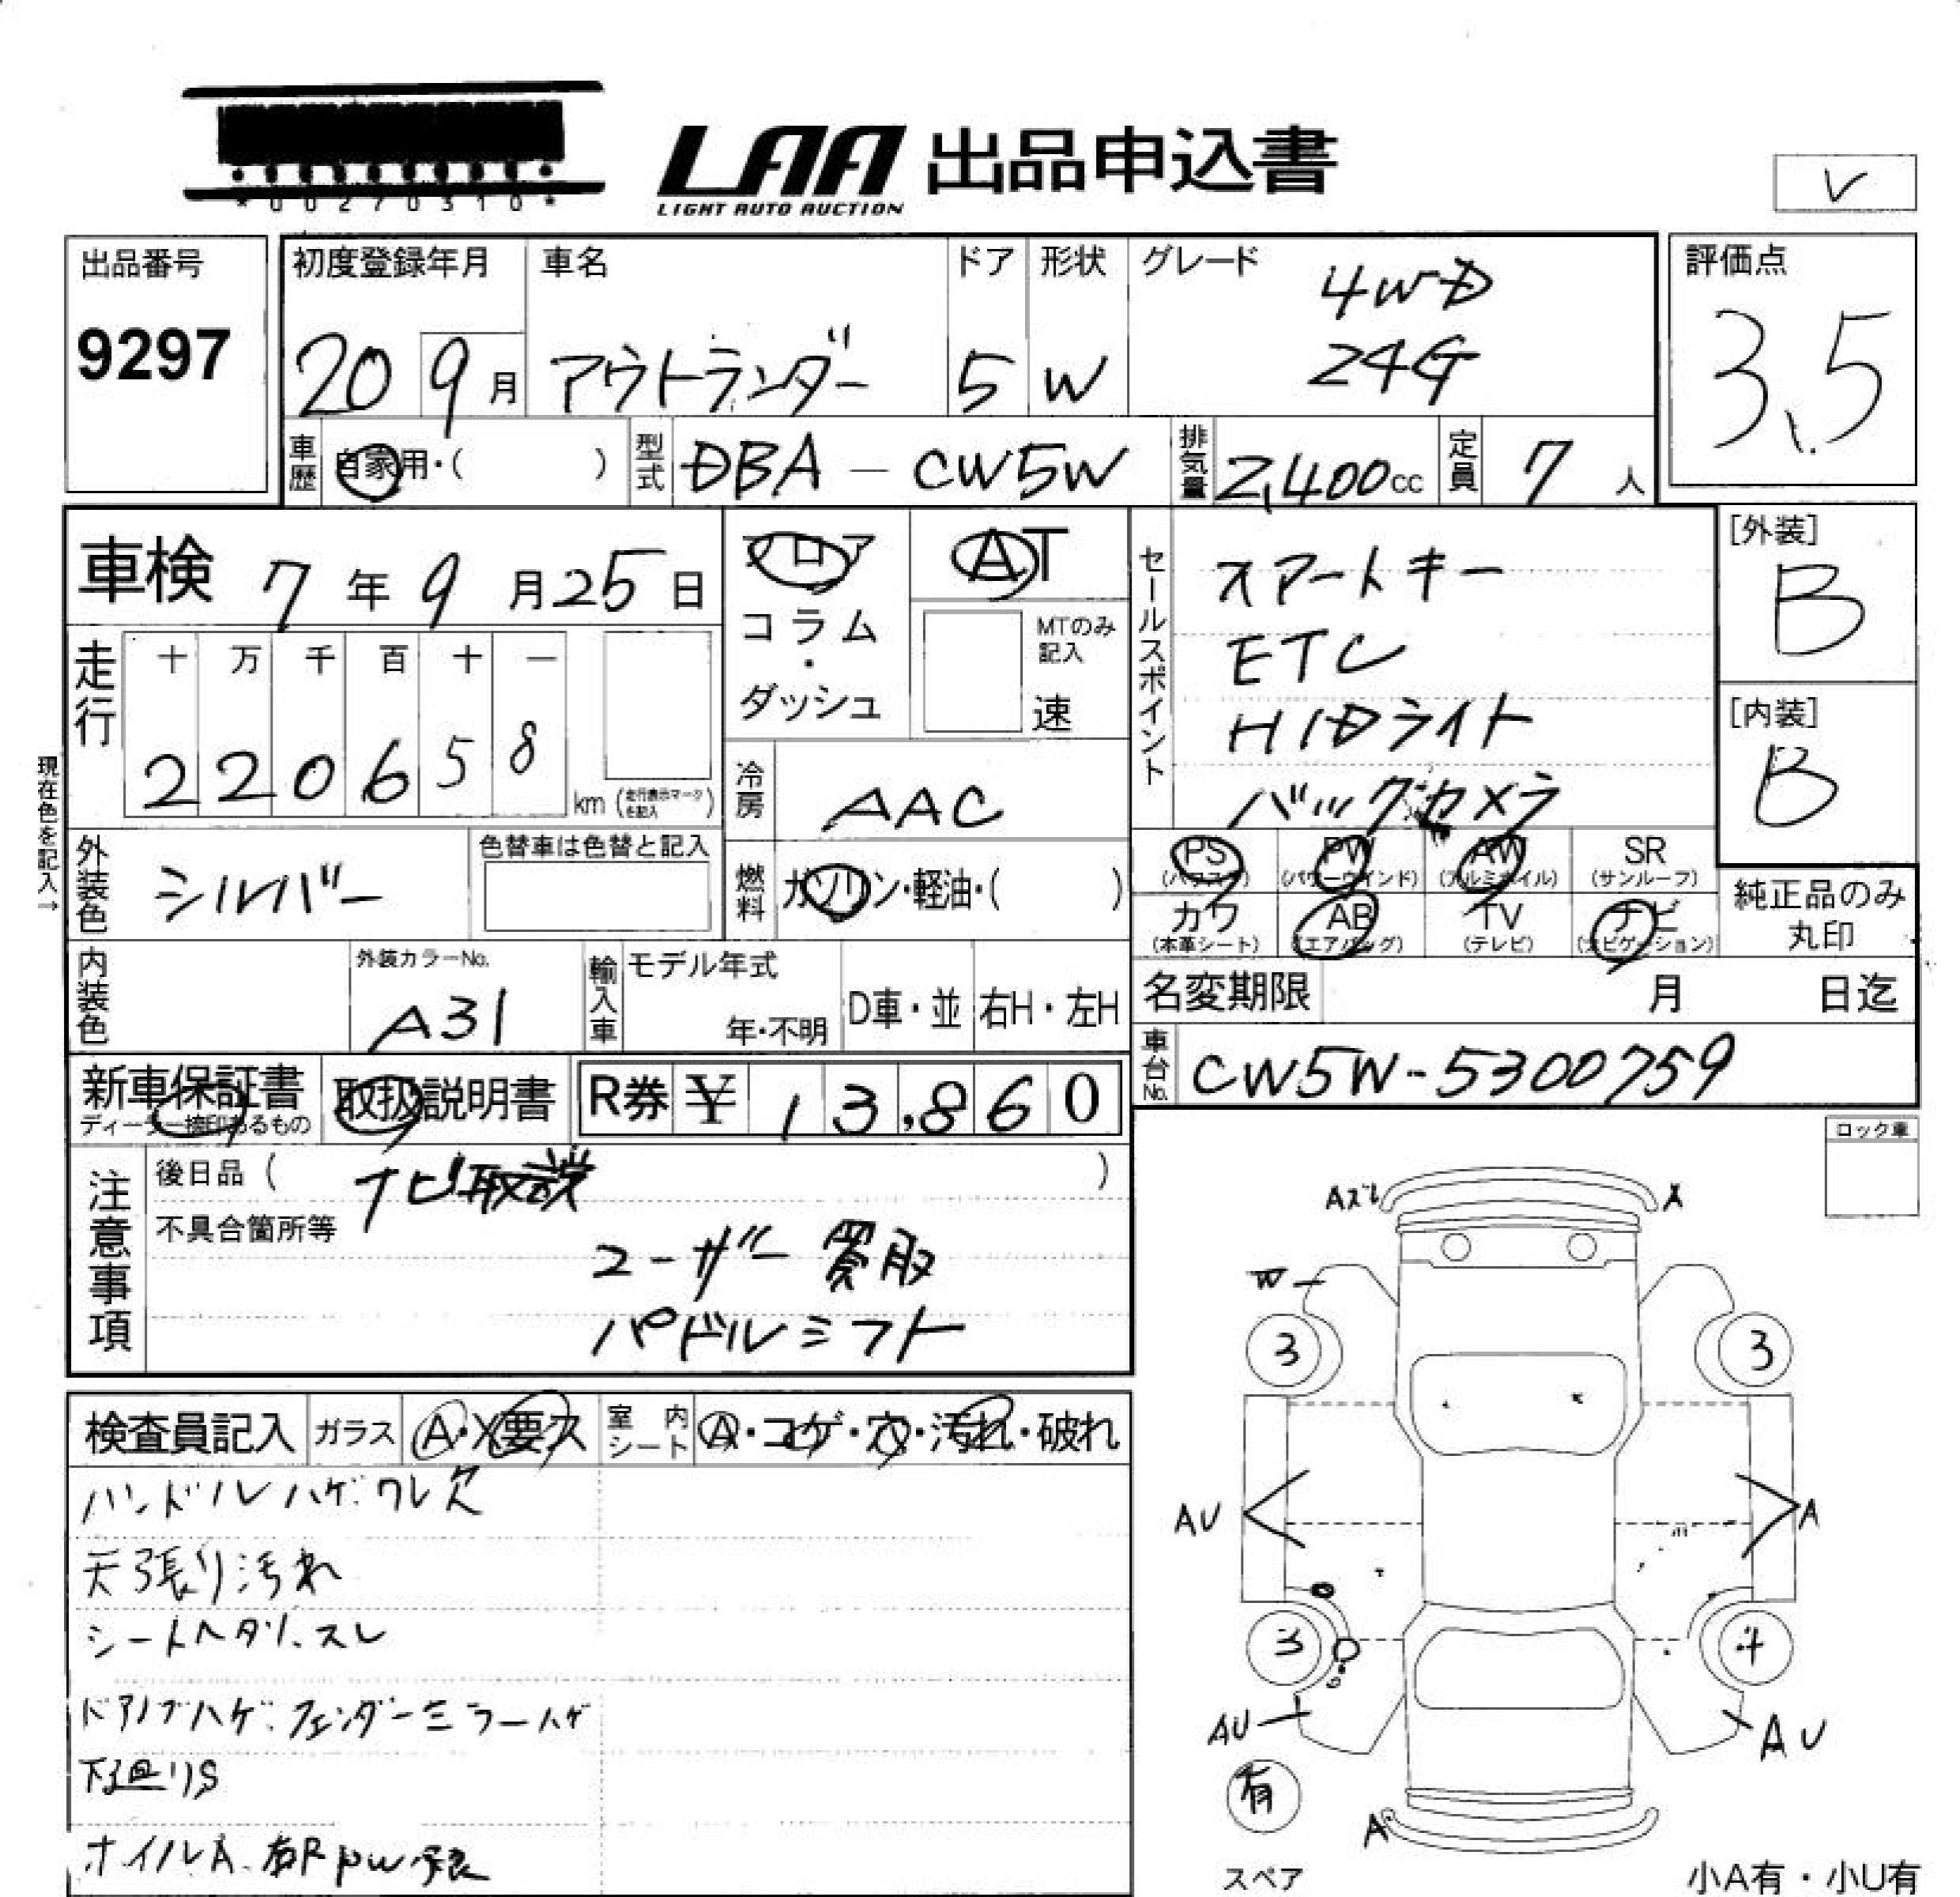 *00270310*
LAA 出品申込書
LIGHT AUTO AUCTION
出品番号
9297
初度登録年月
20 9月
車名
アウトランダー
ドア
5
形状
W
グレード
4WD
24G
評価点
3.5
車歴 自家用・( )
型式 DBA-CW5W
排気量 2,400cc
定員 7人
車検 7年9月25日
フロア
コラム
・
ダッシュ
AT
MTのみ
記入
速
セールスポイント
スマートキー
ETC
HIDライト
バックカメラ
[外装]
B
[内装]
B
走行
十 万 千 百 十 一
2 2 0 6 5 8
km (走行表示マークを記入)
現在色を記入→
冷房 AAC
外装色 シルバー
色替車は色替と記入
燃料 ガソリン・軽油・( )
PS (パワステ)
PW (パワーウインド)
AW (アルミホイル)
SR (サンルーフ)
カワ (本革シート)
AB (エアバッグ)
TV (テレビ)
ナビ (ナビゲーション)
純正品のみ
丸印
内装色
外装カラーNo.
A31
輸入車
モデル年式
年・不明
D車・並
右H・左H
名変期限 月 日迄
車台No. CW5W-5300759
新車保証書
ディーラー捺印あるもの
取扱説明書
R券 ¥ 13,860
注意事項
後日品( ナビ取説 )
不具合箇所等
ユーザー買取
パドルシフト
ロック車
検査員記入
ガラス A・X要ス
室内シート A・コゲ・穴・汚れ・破れ
ハンドルハゲ.ワレ欠
天張り汚れ
シートヘタリ、スレ
ドアノブハゲ.フェンダーミラーハゲ
下廻りS
ホイルA.
Aズレ
A
W
3
3
AU
A
3
4
AU
AU
有
A
スペア
小A有・小U有